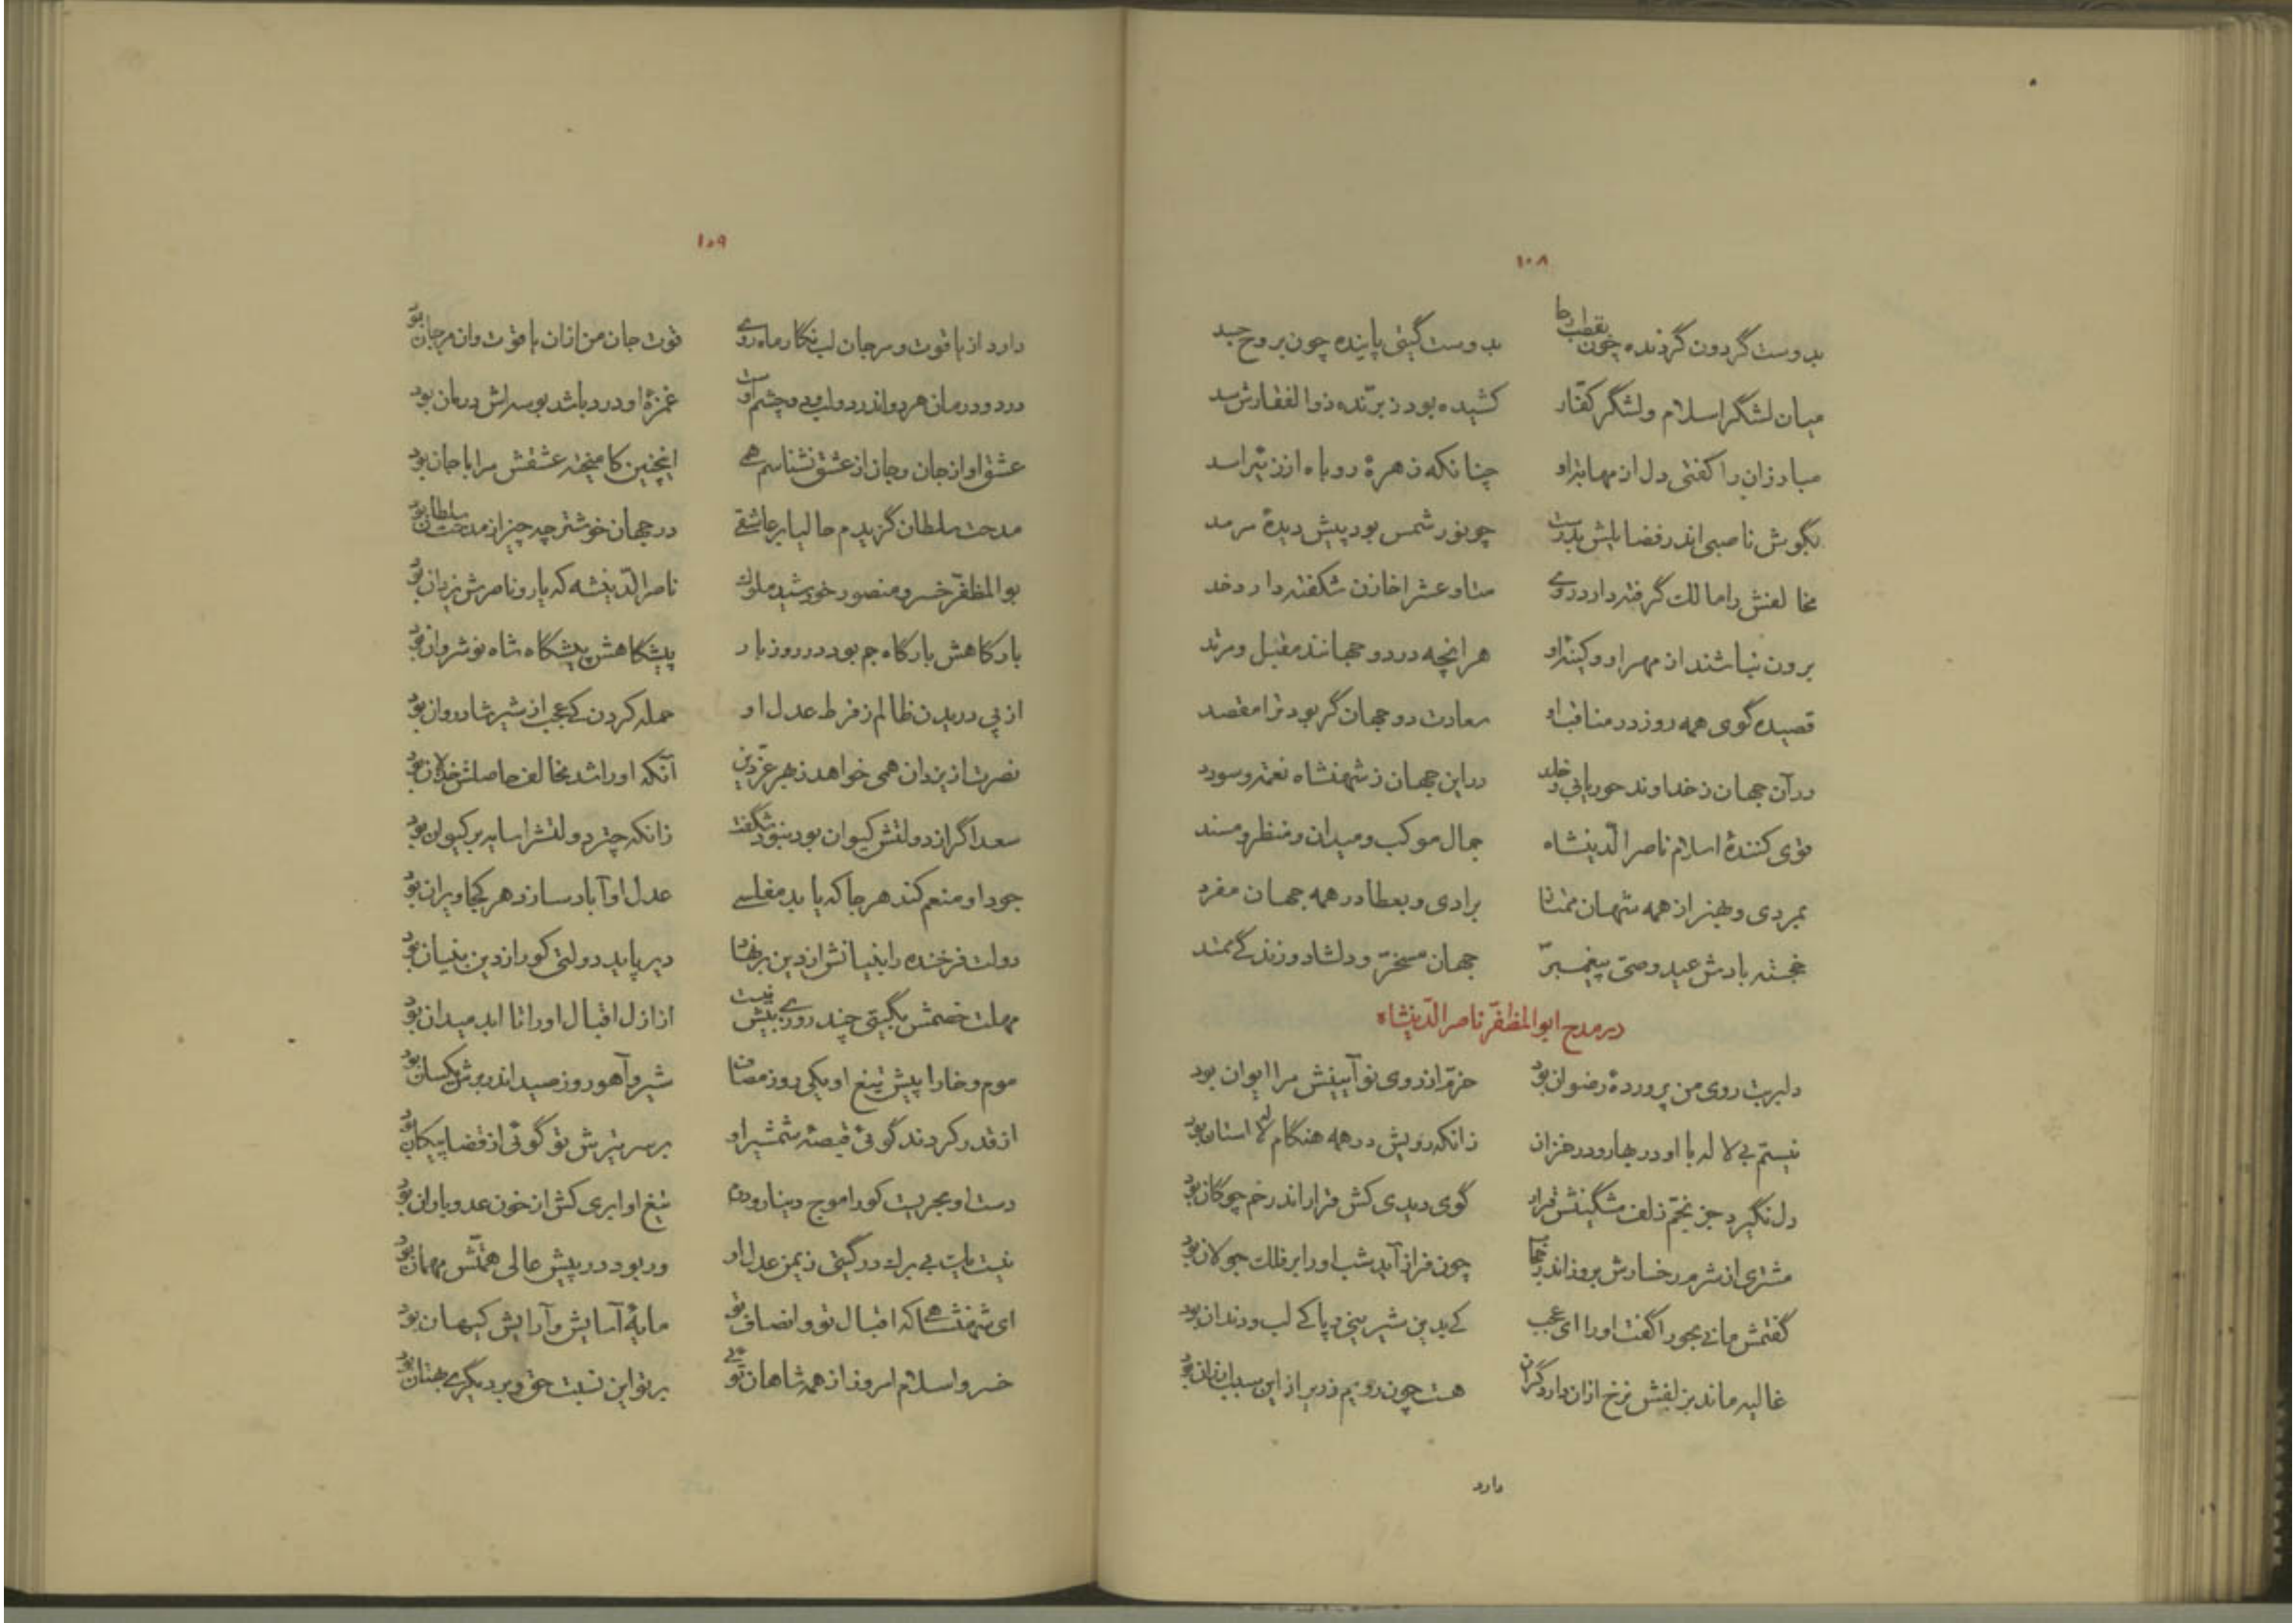 ۱۰۸
بدوست گردون گردنده چون بقطب رحا بدوست گیتی پاینده چون بروح جسد
میان لشگر اسلام و لشگر کفّار کشیده بود ز برّنده ذوالفقارش سد
مبارزان را کفتی دل از مهابت او چنانکه زهرهٔ روباه از زئیر اسد
بگوش ناصبی اندر فضایلش بدرست چو نور شمس بود پیش دیدهٔ سرمد
مخالفنش را مالک گرفته دارد روی متاوعشرا خازن شکفته دارد خد
برون نباشند از مهر او و کینهٔ او هر انچه در دو جهانند مقبل و مرتد
قصیده گوی همه روز در مناقب او سعادت دو جهان گر بود ترا مقصد
در آن جهان ز خداوند حور یابی و خلد در این جهان ز شهنشاه نعمت و سودد
قوی کنندهٔ اسلام ناصر الدّینشاه جمال موکب و میدان و منظر و مسند
بمردی و بهنر از همه شهان ممتاز برادی و بعطا در همه جهان مفرد
خجسته بادش عید وصیّ پیغمبرّ جهان مسخرّ و دلشاد و زندگے ممتد
در مدح ابوالمظفّر ناصر الدّینشاه
دلبریت روی من پروردهٔ رضوان بود خرّم از روی نو آیینش مرا ایوان بود
نیستم بی لاله با او در بهار و در خزان زانکه رویش در همه هنگام لالستان بود
دل نگیرد جز بخمّ زلف مشگینش قرار گوی دیدی کش قرار اندر خم چوگان بود
مشتری از شرم رخسارش بروز اندر حجاب چون فراز آید شب او را بر فلک جولان بود
گفتمش مانے بحور اگفت اورا ای عجب کے بدین شیرینی و پاکے لب و دندان بود
غالیه ماند بزلفش نرخ ازان دارد گران هست چون رویم زریر از این سبب ارزان بود
دارد
۱۰۹
دارد از یاقوت و مرجان لب نگار ماه روی قوت جان من ازان یاقوت وان مرجان بود
درد و درمان هر دو اندر دو لب و دو چشم اوست غمزهٔ او درد باشد بوسه اش درمان بود
عشق او از جان و جان از عشق نشناسم همے اینچنین کامیخته عشقش مرا با جان بود
مدحت سلطان گزیدم حالیا بر عاشقے در جهان خوشتر چه چیز از مدحت سلطان بود
بوالمظفّر خسرو منصور خورشید ملوک ناصر الدّینشه که یار و ناصرش یزدان بود
بارکاهش بارکاه جم بود در روز بار پیشکاهش پیشکاه شاه نوشروان بود
از پی دریدن ظالم ز فرط عدل او حمله کردن کے عجب از شیر شادروان بود
نصرت از یزدان همی خواهد ز بهر عزّ دین آنکه اورا شد مخالف حاصلش خذلان بود
سعد اگر از دولتش کیوان بود نبود شگفت زانکه چتر دولتشرا سایه بر کیوان بود
جود او منعم کند هر جا که یابد مفلسے عدل او آباد سازد هر کجا ویران بود
دولت فرخنده را بنیانش از دین بر نهاد دیر پاید دولتی کورا ز دین بنیان بود
مهلت خصمش بگیتی چند روزی بیش نیست از ازل اقبال اورا تا ابد میدان بود
موم و خارا پیش تیغ او یکی روز مصاف شیر و آهو روز صید اندر برش یکسان بود
از قدر کردند گوئی قبضهٔ شمشیر او بر سر تیرش تو گوئی از قضا پیکان بود
دست او بحریست کورا موج دینار و درم تیغ او ابری کش از خون عدو باران بود
نیست یکت بے برک در گیتی ز یمن عدل او ور بود در پیش عالی همّتش مهمان بود
ای شهنشاهے که اقبال تو و انصاف تو مایهٔ آسایش و آرایش کیهان بود
خسرو اسلام امروز از همه شاهان توئے بر تو این نسبت حق و بر دیگرے بهتان بود